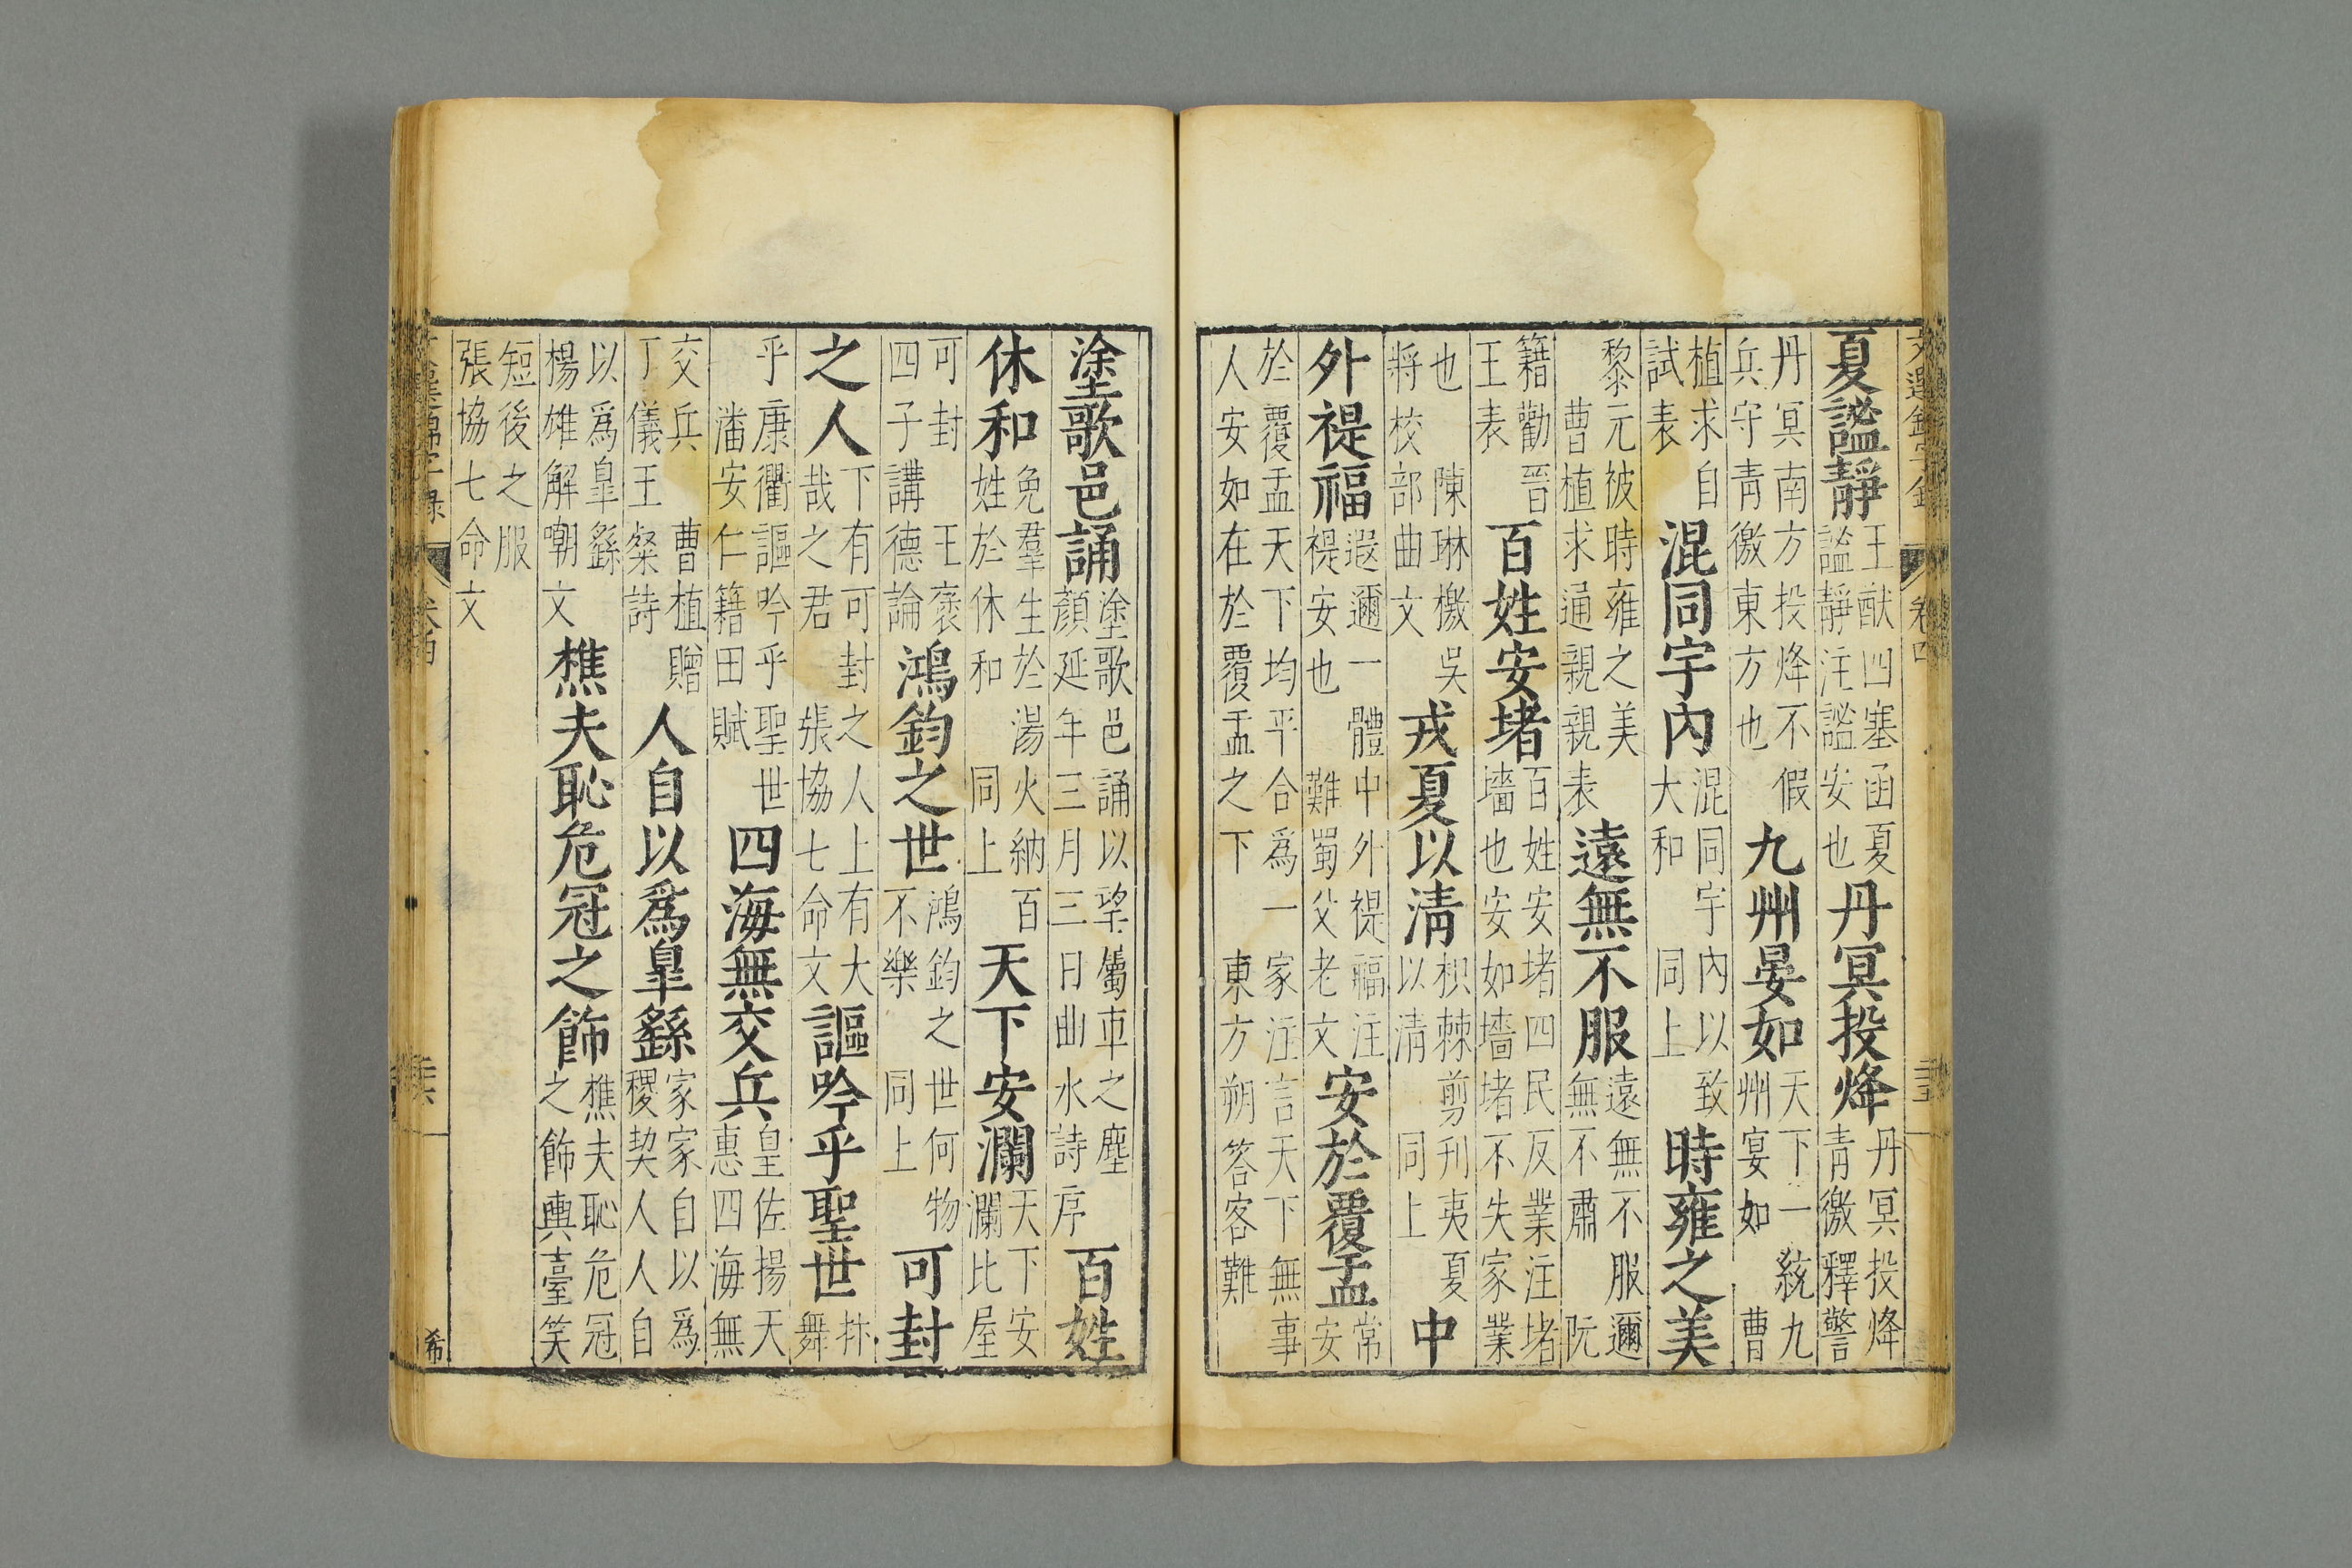 卷四
夏謐靜 王猷四塞函夏 謐靜注謐安也 丹冥投烽 丹冥投烽 青徼釋警
丹冥南方投烽不假 兵守青徼東方也 九州晏如 天下一統九 州宴如 曹
植求自 試表 混同宇內 混同宇內以致 大和 同上 時雍之美
黎元被時雍之美 曹植求通親親表 遠無不服 遠無不服邇 無不肅 阮
籍勸晉 王表 百姓安堵 百姓安堵四民反業注堵 墻也安如墻堵不失家業
也 陳琳檄吳 將校部曲文 戎夏以清 枳棘剪刋夷夏 以清 同上 中
外禔福 遐邇一體中外禔福注 禔安也 難蜀父老文 安於覆盂 常 安
於覆盂天下均平合爲一家注言天下無事 人安如在於覆盂之下 東方朔答客難
塗歌邑誦 塗歌邑誦以望屬車之塵 顏延年三月三日曲水詩序 百姓
休和 免羣生於湯火納百 姓於休和 同上 天下安瀾 天下安 瀾比屋
可封 王褒 四子講德論 鴻鈞之世 鴻鈞之世何物 不樂 同上 可封
之人 下有可封之人上有大 哉之君 張協七命文 謳吟乎聖世 抃 舞
乎康衢謳吟乎聖世 潘安仁籍田賦 四海無交兵 皇佐揚天 惠四海無
交兵 曹植贈 丁儀王粲詩 人自以爲臯繇 家家自以爲 稷契人人自
以爲臯繇 楊雄解嘲文 樵夫恥危冠之飾 樵夫恥危冠 之飾輿臺笑
短後之服 張協七命文
希